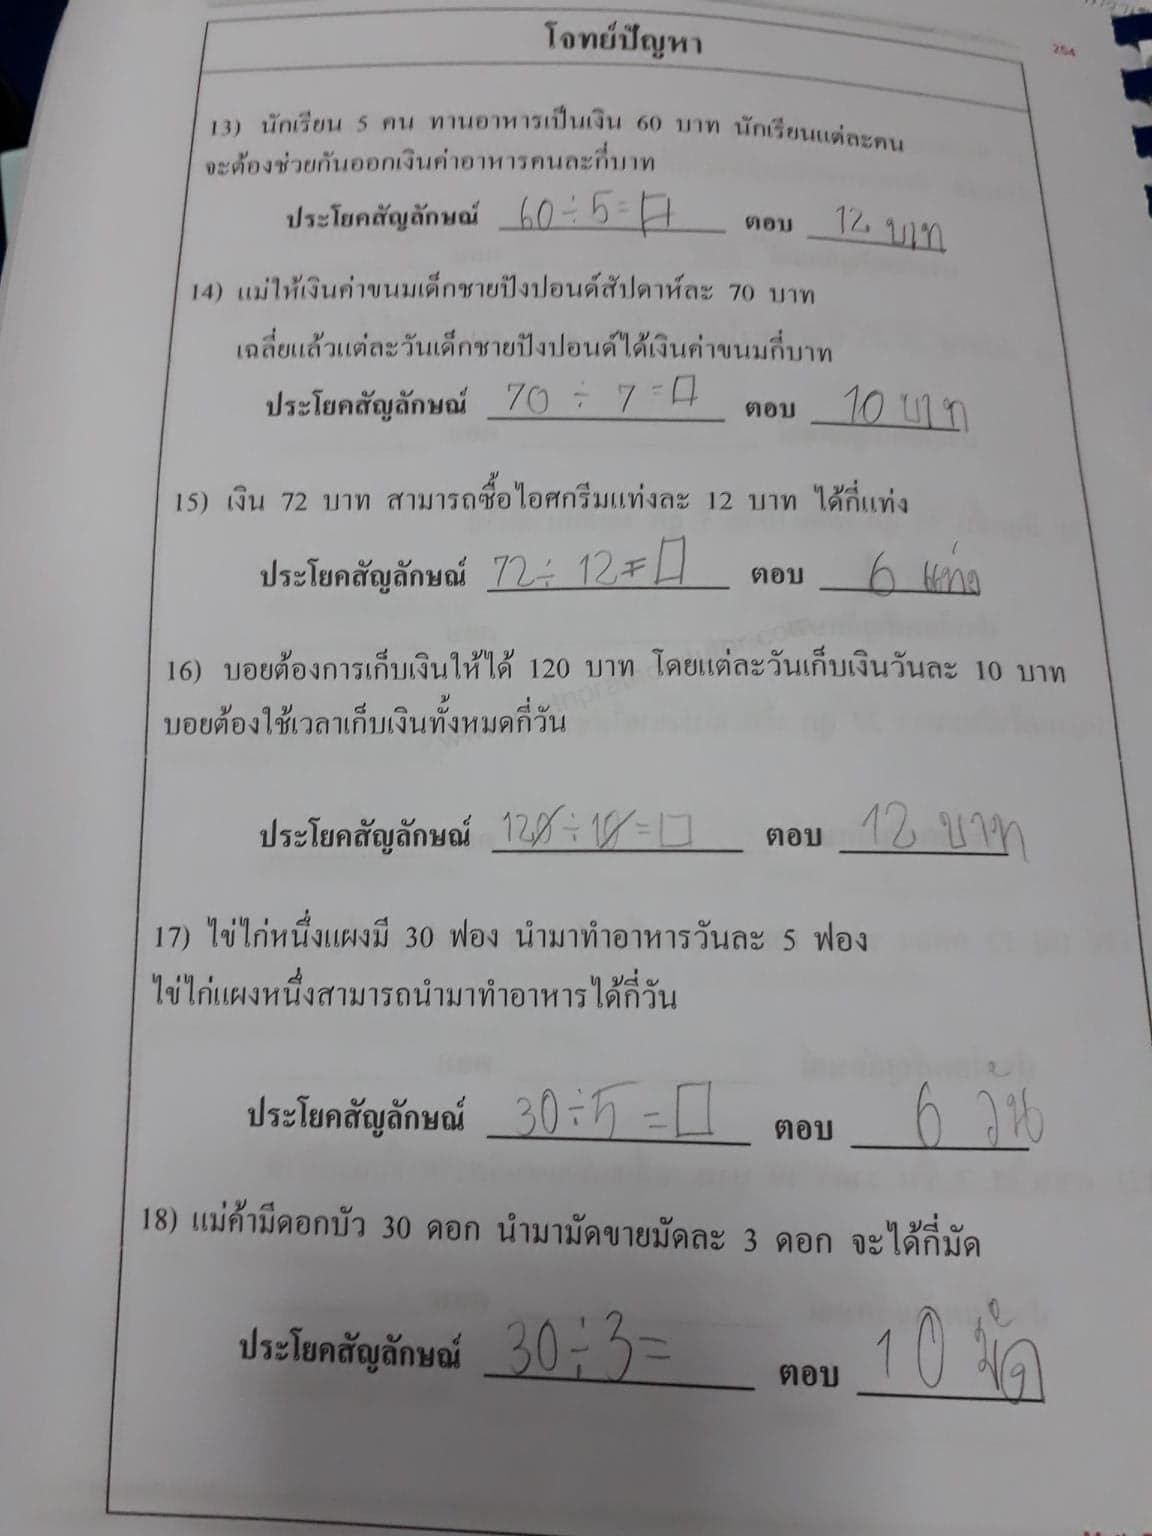 โจทย์ปัญหา
254
13) นักเรียน 5 คน ทานอาหารเป็นเงิน 60 บาท นักเรียนแต่ละคน
จะต้องช่วยกันออกเงินค่าอาหารคนละกี่บาท
ประโยคสัญลักษณ์ 60÷5=□ ตอบ 12 บาท
14) แม่ให้เงินค่าขนมเด็กชายปังปอนด์สัปดาห์ละ 70 บาท
เฉลี่ยแล้วแต่ละวันเด็กชายปังปอนด์ได้เงินค่าขนมกี่บาท
ประโยคสัญลักษณ์ 70 ÷ 7 =□ ตอบ 10 บาท
15) เงิน 72 บาท สามารถซื้อไอศกรีมแท่งละ 12 บาท ได้กี่แท่ง
ประโยคสัญลักษณ์ 72÷ 12=□ ตอบ 6 แท่ง
16) บอยต้องการเก็บเงินให้ได้ 120 บาท โดยแต่ละวันเก็บเงินวันละ 10 บาท
บอยต้องใช้เวลาเก็บเงินทั้งหมดกี่วัน
ประโยคสัญลักษณ์ 120÷10=□ ตอบ 12 บาท
17) ไข่ไก่หนึ่งแผงมี 30 ฟอง นำมาทำอาหารวันละ 5 ฟอง
ไข่ไก่แผงหนึ่งสามารถนำมาทำอาหารได้กี่วัน
ประโยคสัญลักษณ์ 30÷5 =□ ตอบ 6 วัน
18) แม่ค้ามีดอกบัว 30 ดอก นำมามัดขายมัดละ 3 ดอก จะได้กี่มัด
ประโยคสัญลักษณ์ 30÷3= ตอบ 10 มัด